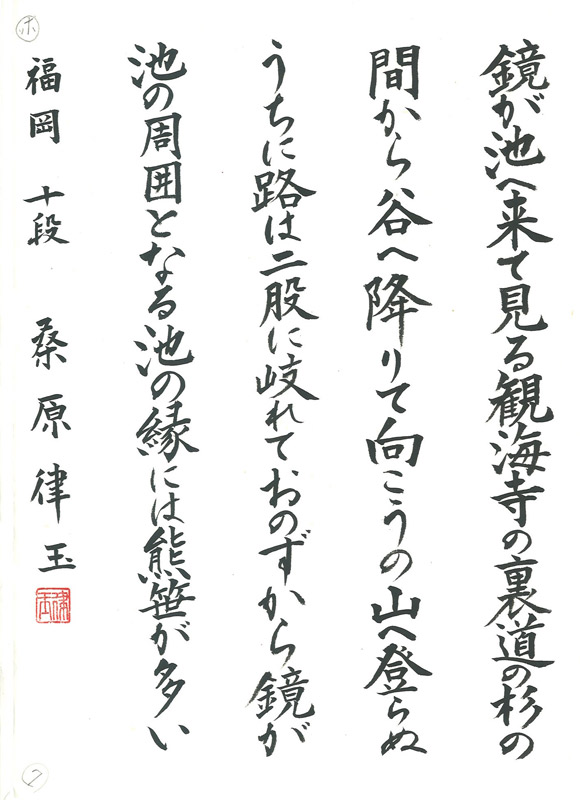 鏡が池へ来て見る観海寺の裏道の杉の
間から谷へ降りて向こうの山へ登らぬ
うちに路は二股に岐れておのずから鏡が
池の周囲となる池の縁には熊笹が多い
福岡 十段 桑原律玉
ホ